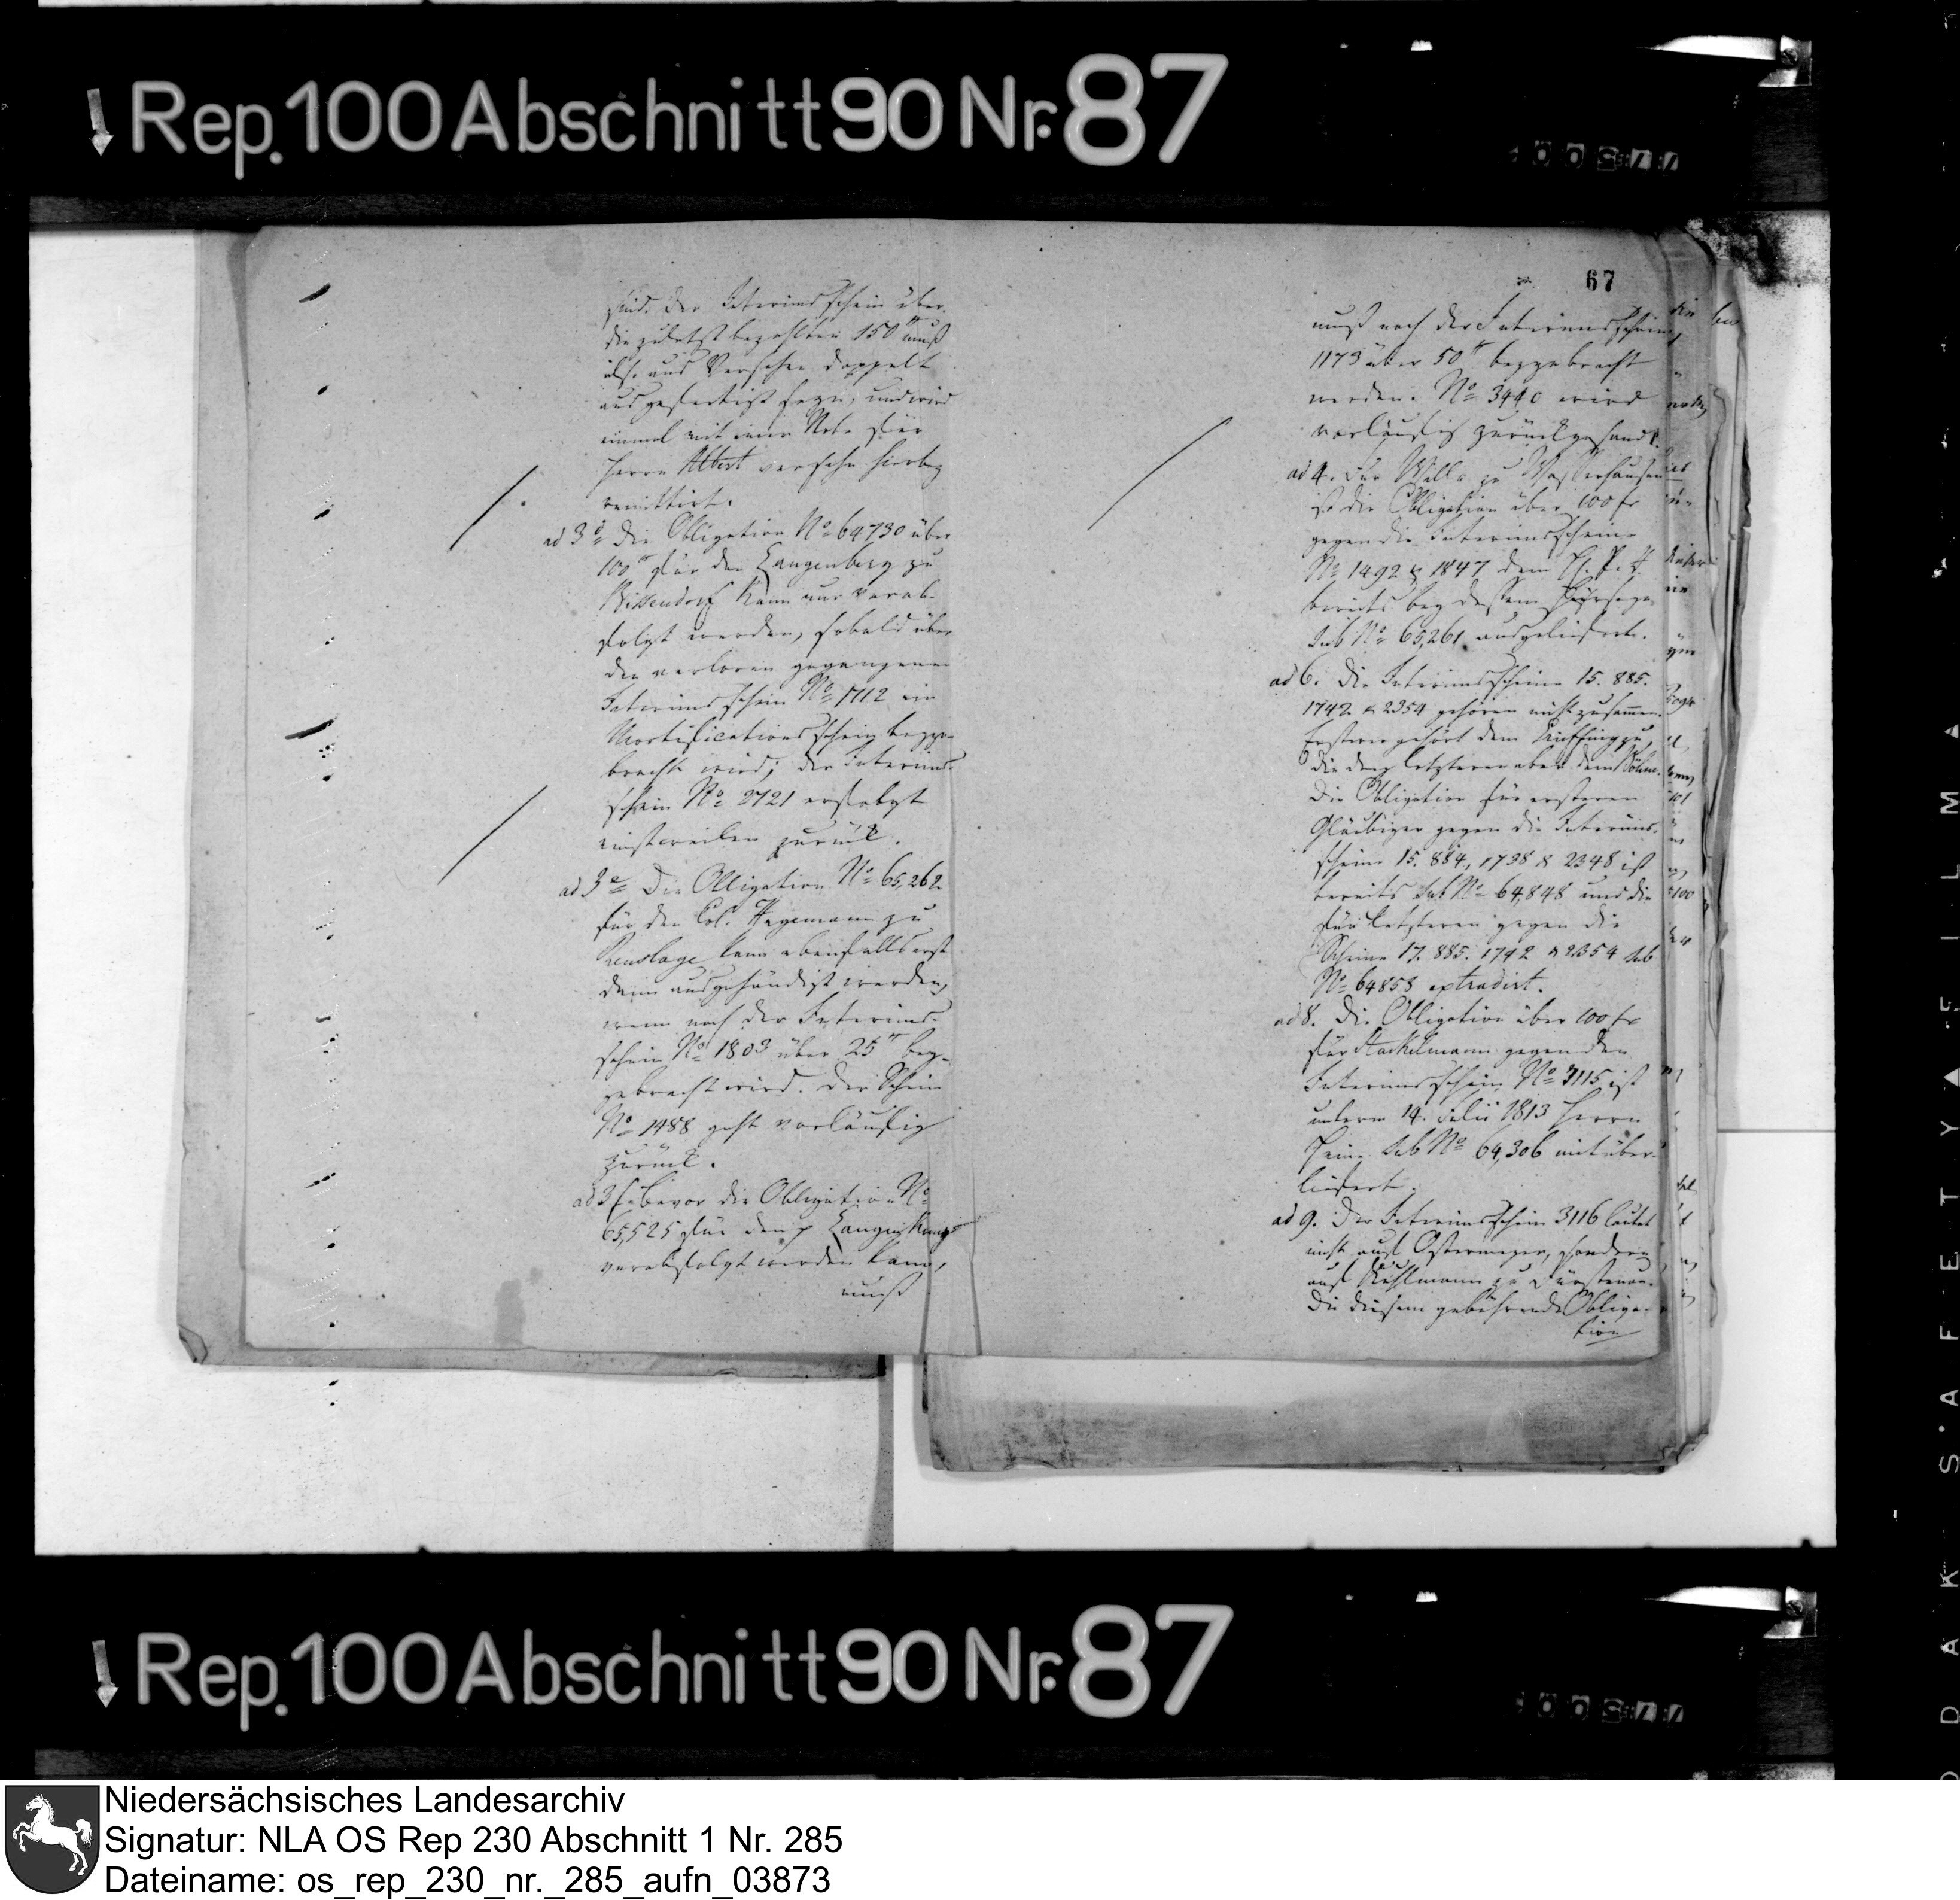 Rep. 100 Abschnitt 90 Nr. 87
67
sind. Der Interimsschein über
die zuletzt bezahlten 150 muß
also aus Versehen doppelt
ausgefertigt seyn, und wird
einmal mit einer Note für
Herrn Albert versehn hierbey
remittirt.
ad 3 d Die Obligation No 64730 über
100 für den Langenberg zu
Bissendorf kann nur verab-
folgt werden, sobald über
den verloren gegangenen
Interimsschein No 1712 ein
Mortificationsschein beyge-
bracht wird; der Interims-
schein No 2721 erfolgt
einstweilen zurück.
ad 3 e Die Obligation No 65,262
für den Col. Hagemann zu
Renslage kann ebenfalls erst
dann ausgehändigt werden,
wenn noch der Interims-
schein No 1803 über 25 bey-
gebracht wird. Der Schein
No 1488 geht vorläufig
zurück.
ad 3 f. Bevor die Obligation No
65,525 für den Langenkamp
verabfolgt werden kann,
muß
muß noch der Interimsschein
1173 über 50 beygebracht
werden. No 3440 wird
vorläufig zurückgesandt.
ad 4. Für Wille zu Wasserhausen
ist die Obligation über 100 fr
gegen die Interimsscheine
No 1492 & 1847 dem
bereits bey dessen
sub No 65,261 ausgeliefert.
ad 6. Die Interimsscheine 15. 885.
1742 & 2354 gehören nicht zusammen.
Ersterer gehört dem
die drey letzteren aber dem
Die Obligation für ersteren
Gläubiger gegen die Interims-
scheine 15. 884, 1738 & 2348 ist
bereits sub No 64,848 und die
für letzteren gegen die
Scheine 17. 885. 1742 & 2354 sub
No 64858 extradirt.
ad 8. Die Obligation über 100 fr
für Stackelmann gegen den
Interimsschein No 3115 ist
unterm 14. Julii 1813 Herrn
sub No 64,306 mit über-
liefert.
ad 9. Der Interimsschein 3116 lautet
nicht auf Ostermeyer, sondern
auf Kuhlmann zu Fürstenau.
Die diesem gebührende Obliga-
tion
Rep. 100 Abschnitt 90 Nr. 87
Niedersächsisches Landesarchiv
Signatur: NLA OS Rep 230 Abschnitt 1 Nr. 285
Dateiname: os_rep_230_nr._285_aufn_03873